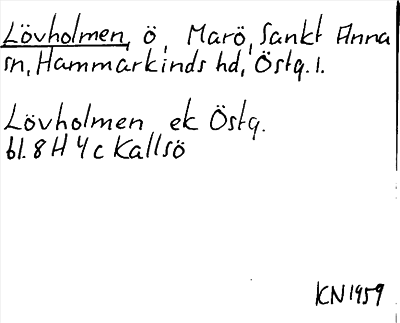 Lövholmen, ö, Marö, Sankt Anna
sn, Hammarkinds hd, Östg. l.
Lövholmen ek Östg.
bl. 8 H 4 c Kallsö
KN 1959